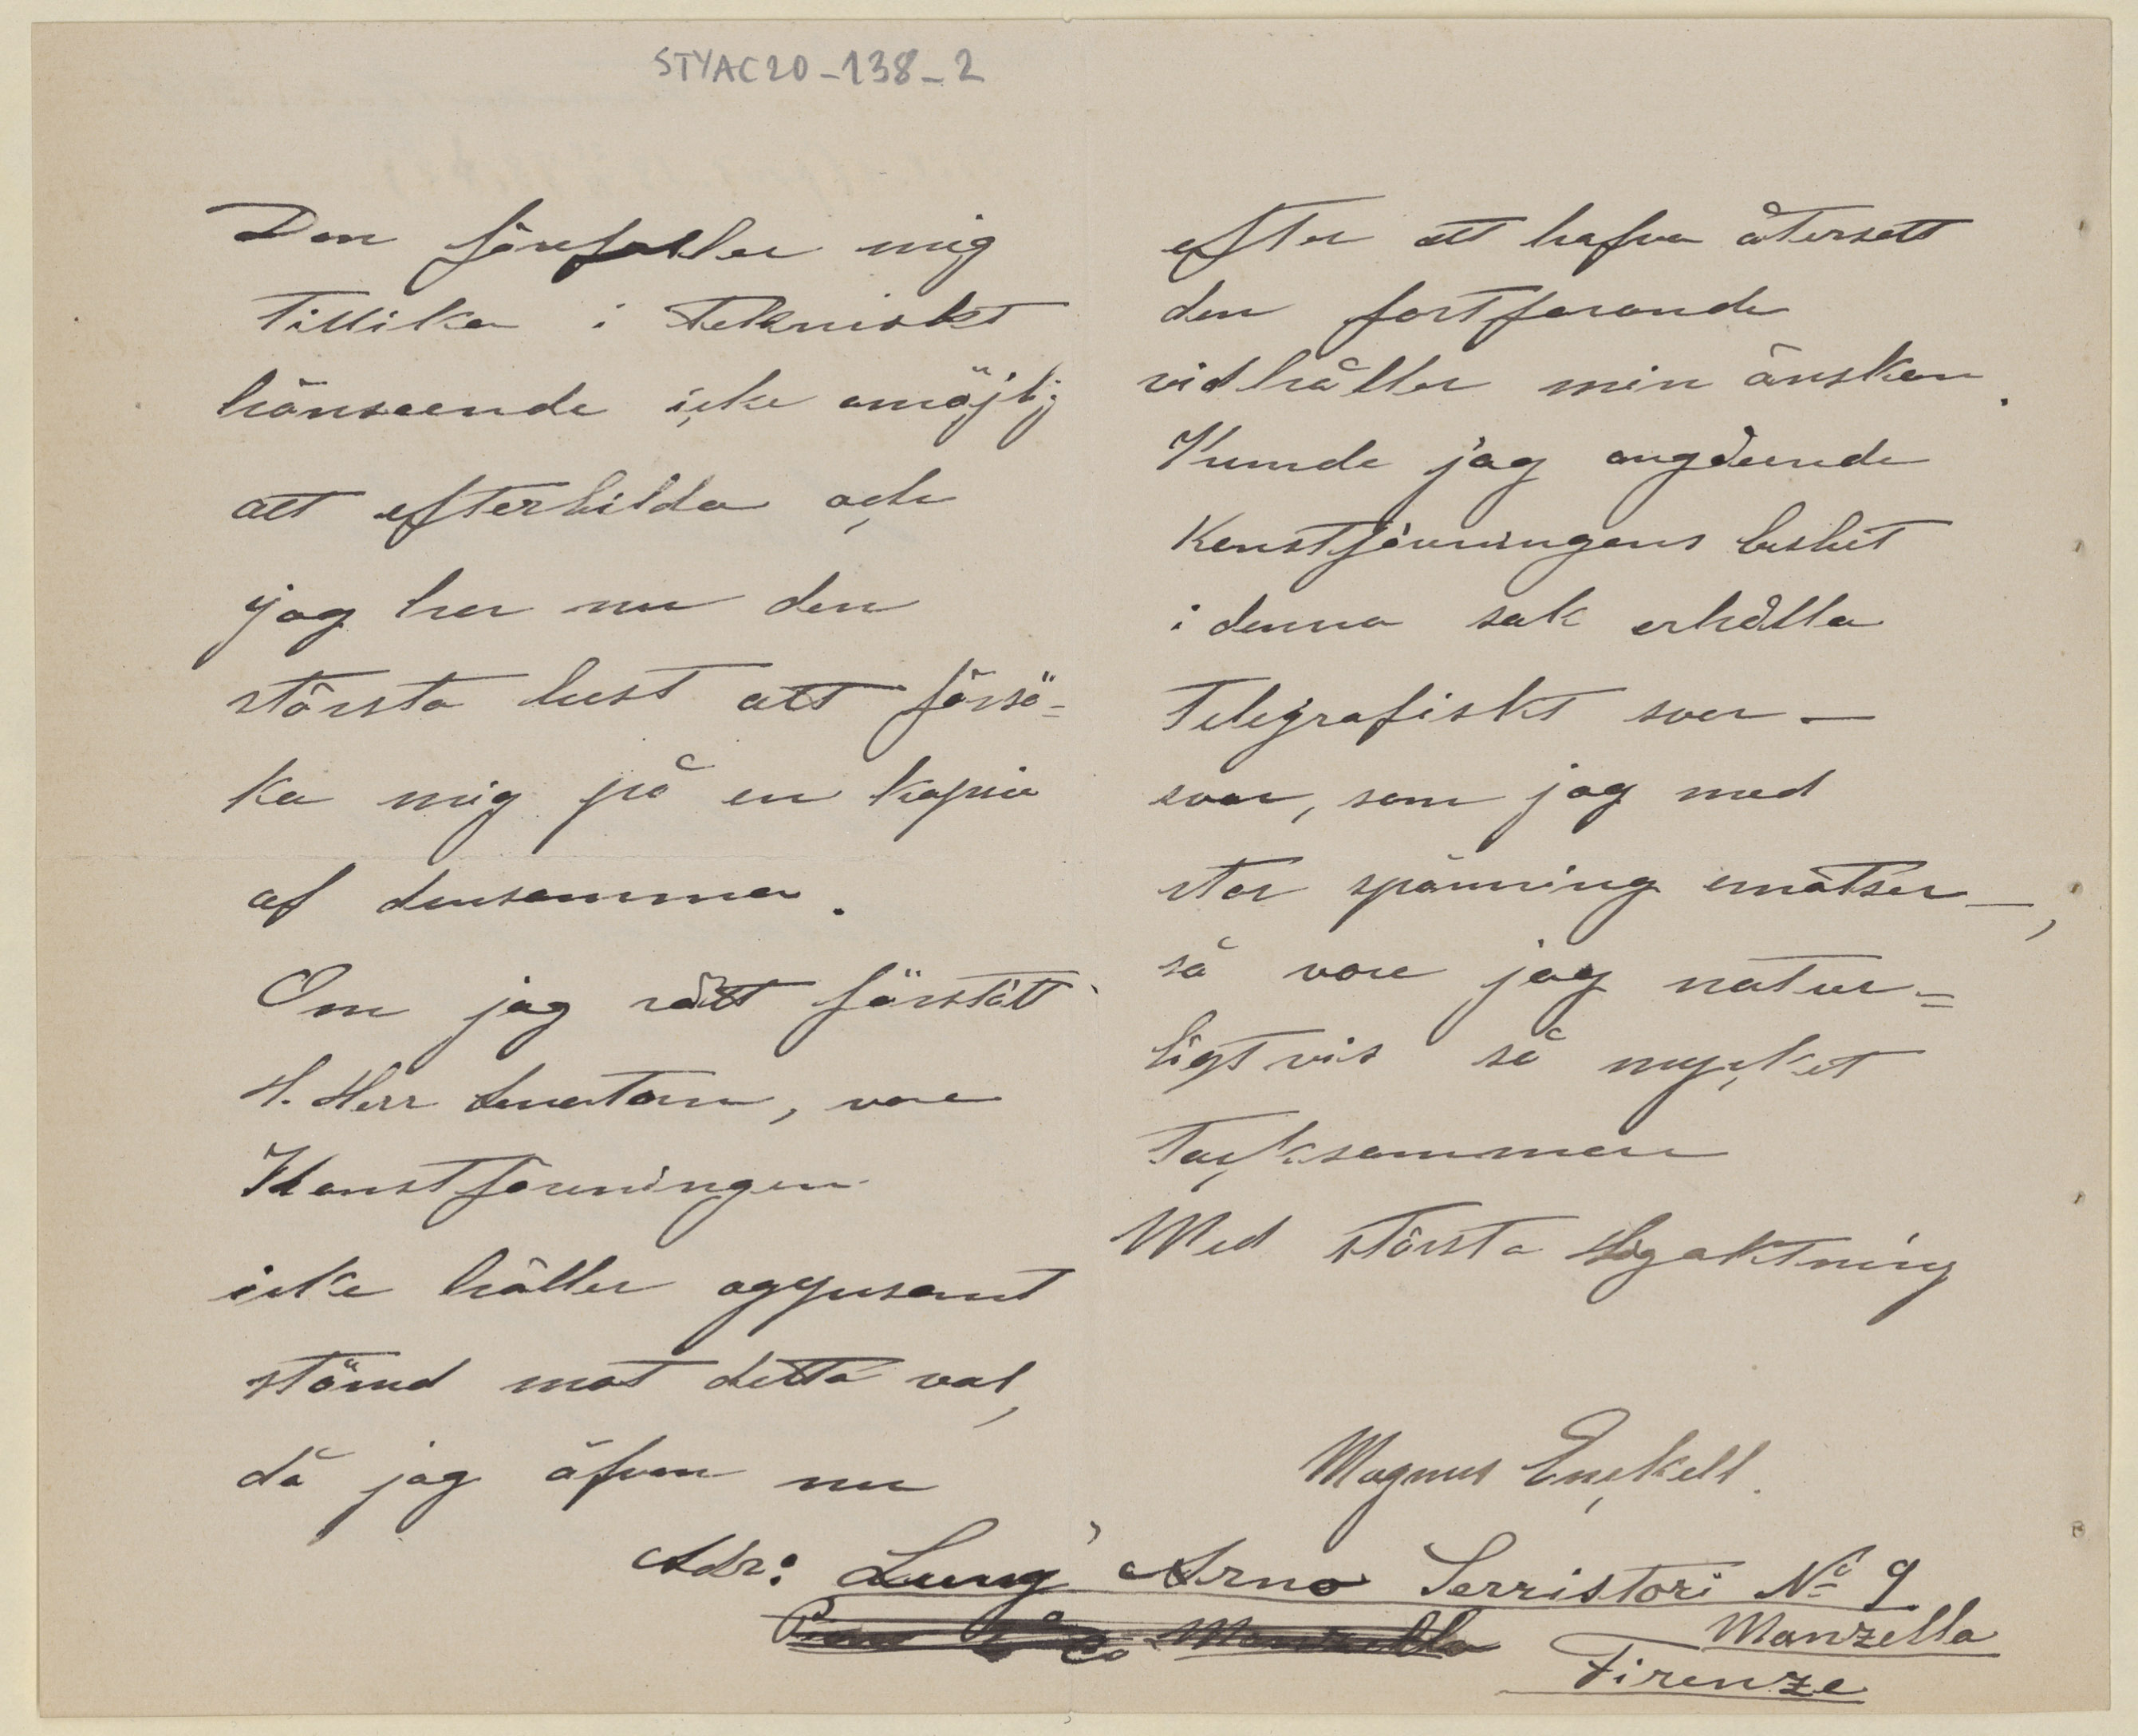 STYAC20-138-2
Den förefaller mig
tillika i tekniskt
hänseende icke omöjlig
att efterbilda och
jag har nu den
största lust att försö=
ka mig på en kopia
af densamma.
Om jag rätt förstått
H. Herr Senatorn, vore
Konstföreningen
icke häller ogynsamt
stämd mot detta val,
då jag äfven nu
efter att hafva återsett
den fortfarande
vidhåller min önskan.
Kunde jag angående
Konstföreningens beslut
i denna sak erhålla
telegrafiskt svar —
svar, som jag med
stor spänning emotser —,
så vore jag natur=
ligtvis så mycket
tacksammare
Med största Högaktning
Magnus Enckell.
Adr: Lung' Arno Serristori No 9
Manzella
Firenze